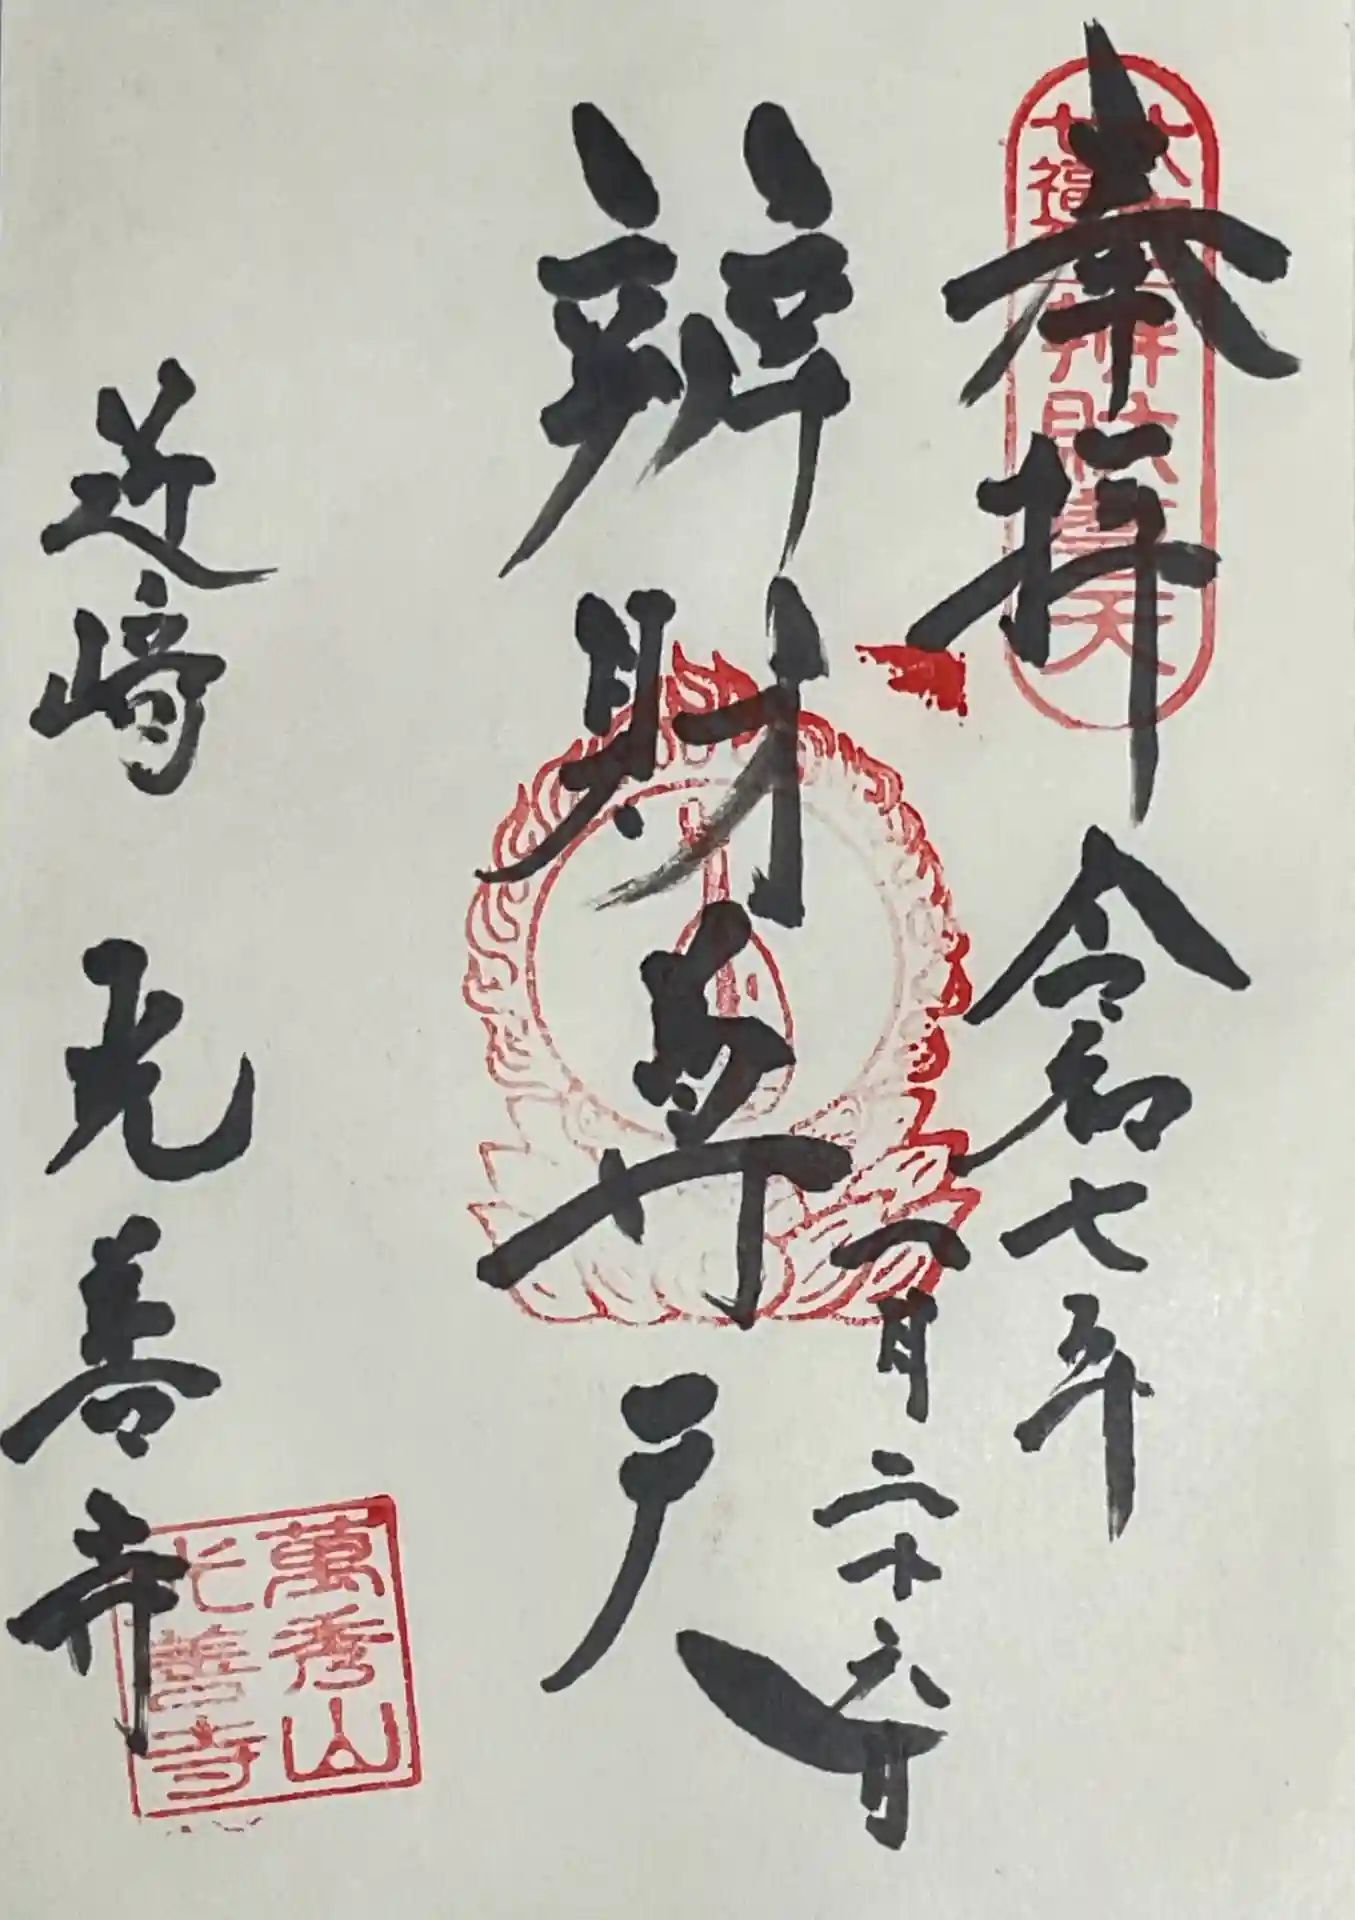 奉拝 令和七年
一月二十六日
辨財尊天
近崎 光善寺
七福
辨財尊天
萬秀山
光善寺